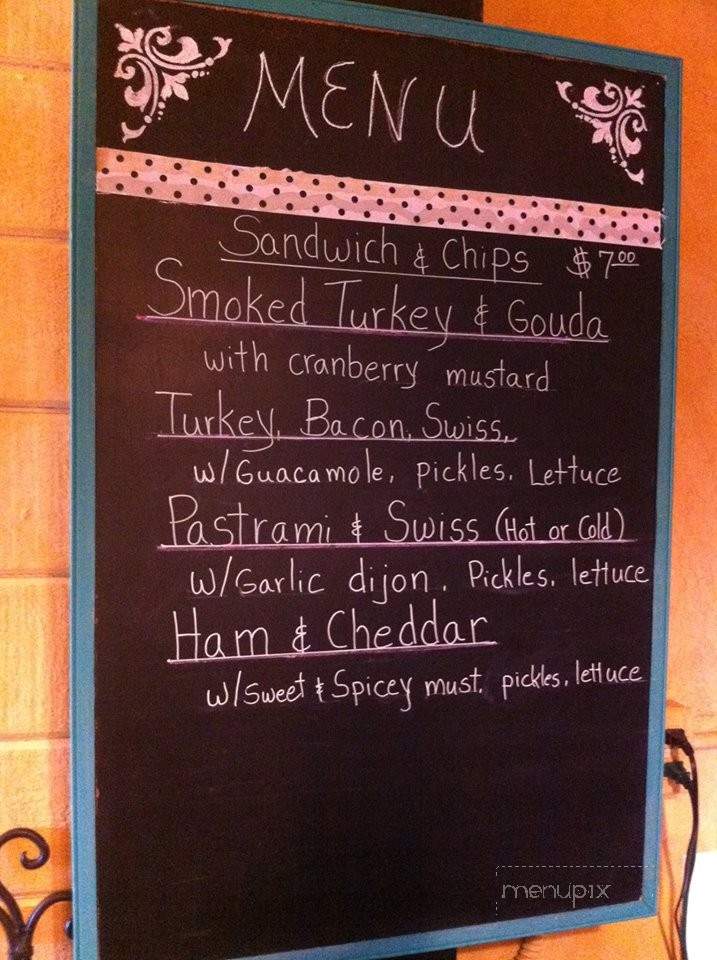 MENU
Sandwich & Chips $7.00
Smoked Turkey & Gouda
with cranberry mustard
Turkey, Bacon, Swiss,
w/Guacamole, Pickles, Lettuce
Pastrami & Swiss (Hot or Cold)
w/Garlic dijon, Pickles, lettuce
Ham & Cheddar
w/Sweet & Spicey must. pickles, lettuce
menupix